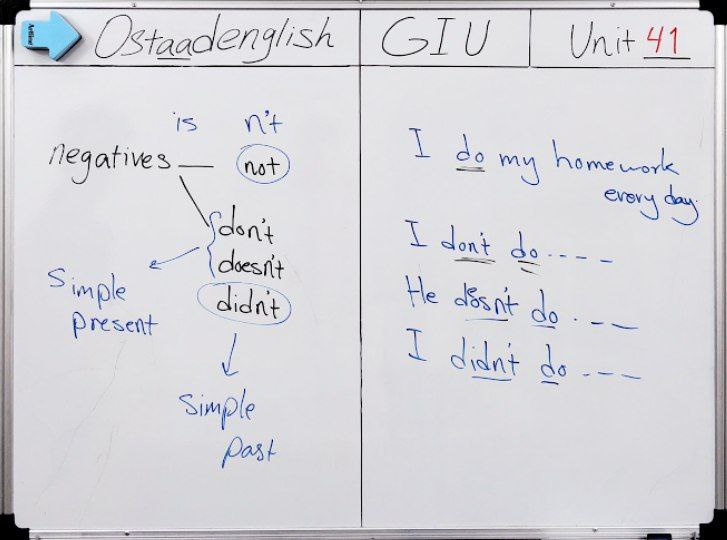 Ostaadenglish
GIU
Unit 41
is n't
negatives — not
don't
doesn't
didn't
Simple
present
Simple
past
I do my homework
every day.
I don't do ----
He doesn't do . ---
I didn't do ---